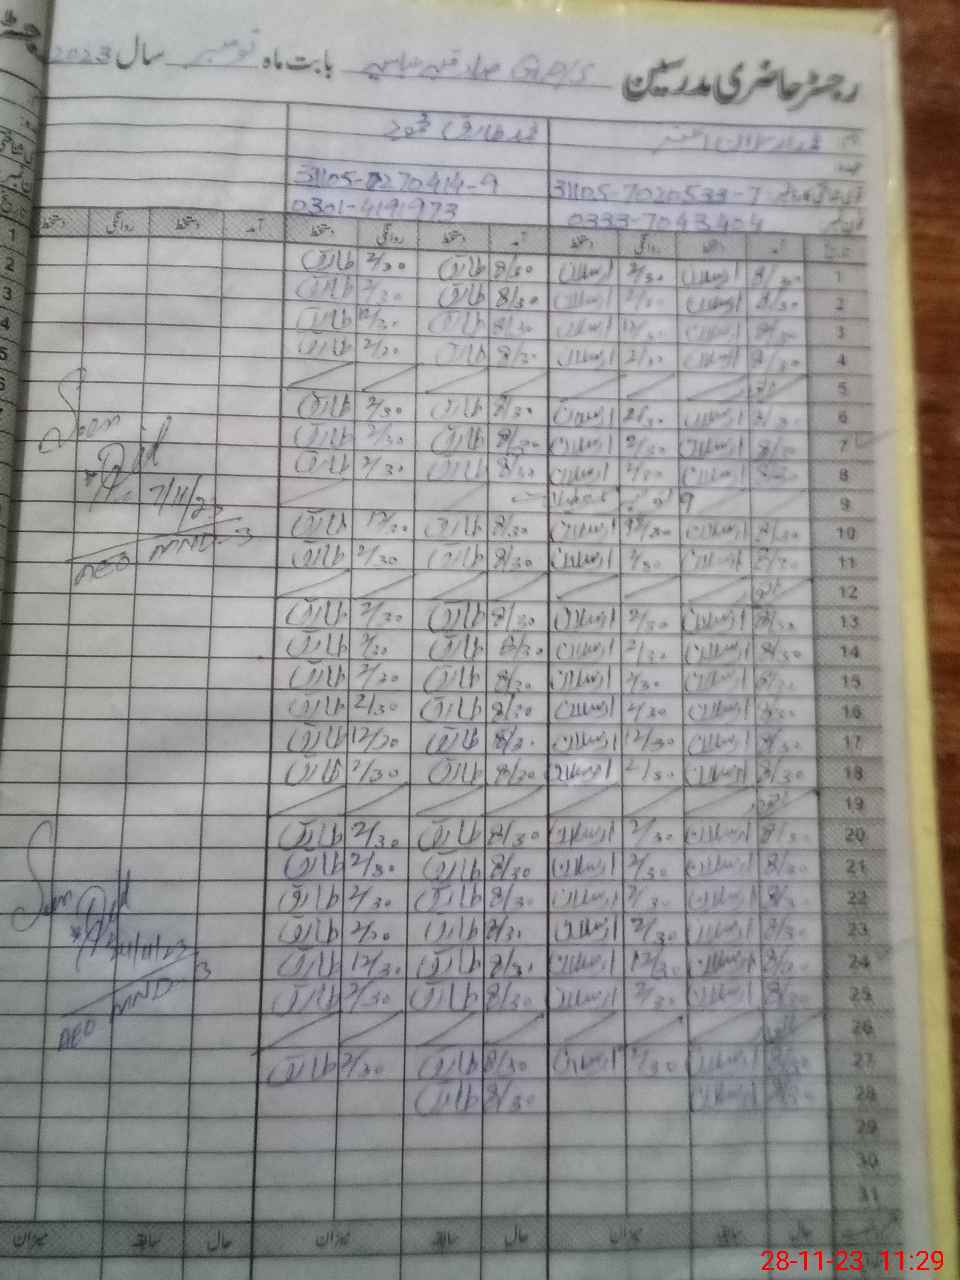 رجسٹر حاضری مدرسین GPS بابت ماہ نومبر سال 2023
محمد طارق محمود
31105-7020533-7 31105-0270414-9
0333-7043404 0301-4191973
تاریخ آمد دستخط روانگی دستخط آمد دستخط روانگی دستخط آمد دستخط روانگی دستخط
1 8/30 ارسلان 2/30 ارسلان 8/30 طارق 2/30 طارق
2 8/30 ارسلان 2/30 ارسلان 8/30 طارق 2/30 طارق
3 8/30 ارسلان 12/30 ارسلان 8/30 طارق 12/30 طارق
4 8/30 ارسلان 2/30 ارسلان 8/30 طارق 2/30 طارق
5 اتوار
6 8/30 ارسلان 2/30 ارسلان 8/30 طارق 2/30 طارق
7 8/30 ارسلان 2/30 ارسلان 8/30 طارق 2/30 طارق
8 8/30 ارسلان 2/30 ارسلان 8/30 طارق 2/30 طارق
9 9 نومبر
10 8/30 ارسلان 12/30 ارسلان 8/30 طارق 12/30 طارق
11 8/30 ارسلان 2/30 ارسلان 8/30 طارق 2/30 طارق
12 اتوار
13 8/30 ارسلان 2/30 ارسلان 8/30 طارق 2/30 طارق
14 8/30 ارسلان 2/30 ارسلان 8/30 طارق 2/30 طارق
15 8/30 ارسلان 2/30 ارسلان 8/30 طارق 2/30 طارق
16 8/30 ارسلان 2/30 ارسلان 8/30 طارق 2/30 طارق
17 8/30 ارسلان 12/30 ارسلان 8/30 طارق 12/30 طارق
18 8/30 ارسلان 2/30 ارسلان 8/30 طارق 2/30 طارق
19 اتوار
20 8/30 ارسلان 2/30 ارسلان 8/30 طارق 2/30 طارق
21 8/30 ارسلان 2/30 ارسلان 8/30 طارق 2/30 طارق
22 8/30 ارسلان 2/30 ارسلان 8/30 طارق 2/30 طارق
23 8/30 ارسلان 2/30 ارسلان 8/30 طارق 2/30 طارق
24 8/30 ارسلان 12/30 ارسلان 8/30 طارق 12/30 طارق
25 8/30 ارسلان 2/30 ارسلان 8/30 طارق 2/30 طارق
26 اتوار
27 8/30 ارسلان 2/30 ارسلان 8/30 طارق 2/30 طارق
28 8/30 ارسلان 8/30 طارق
29
30
31
حال سابقہ میزان حال سابقہ میزان حال سابقہ میزان
Seen
7/11/23
AEO MND-3
Seen
24/11/23
AEO MND-3
28-11-23 11:29